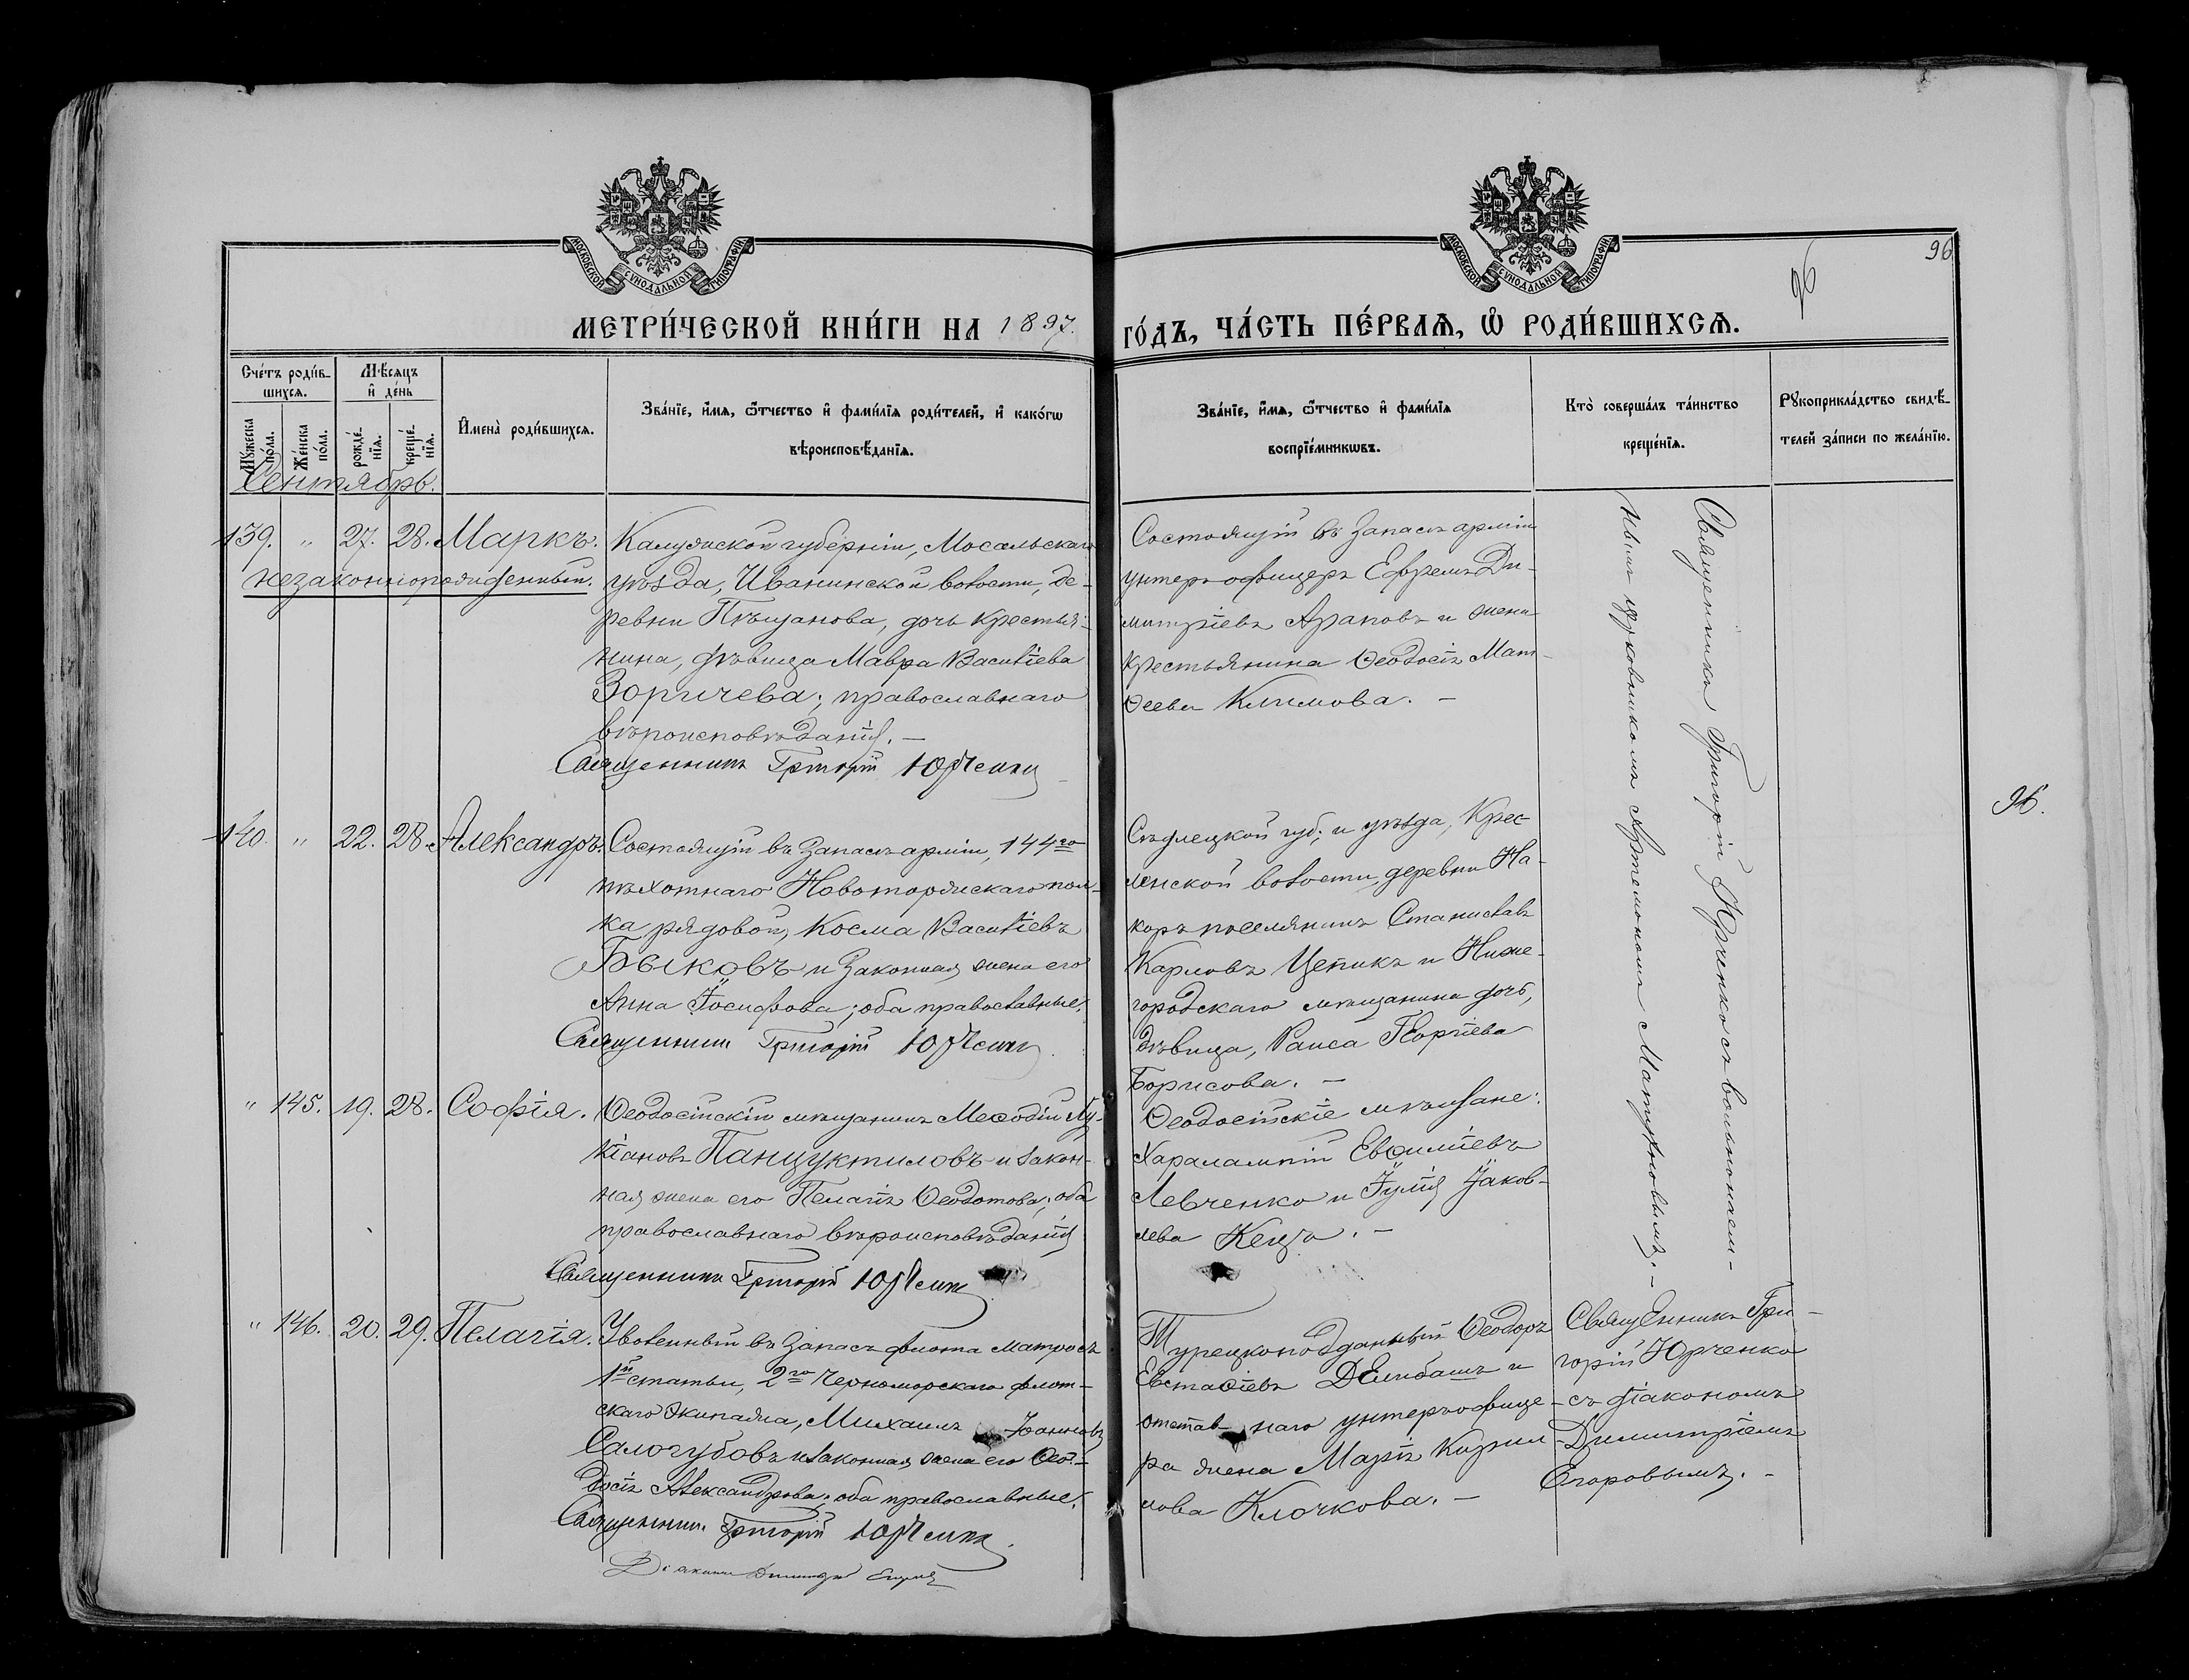 МОСКОВСКОЙ СѴНОДАЛЬНОЙ ТИПОГРАФІИ
МОСКОВСКОЙ СѴНОДАЛЬНОЙ ТИПОГРАФІИ
96
96
МЕТРИ́ЧЕСКОЙ КНИ́ГИ НА 1897. ГО́ДЪ, ЧА́СТЬ ПЕ́РВАѦ, Ѡ҆ РОДИ́ВШИХСѦ.
Сче́тъ роди́в-
шихсѧ.
Мѣ́сѧцъ
и҆ де́нь
Мꙋ́жеска
по́ла.
Же́нска
по́ла.
рожде́-
нїѧ.
креще́-
нїѧ.
И҆мена̀ роди́вшихсѧ.
Зва́нїе, и҆́мѧ, ѻ҆́тчество и҆ фами́лїѧ роди́телей, и҆ како́гѡ
вѣроисповѣ́данїѧ.
Зва́нїе, и҆́мѧ, ѻ҆́тчество и҆ фами́лїѧ
воспрїе́мникѡвъ.
Кто̀ соверша́лъ та́инство
креще́нїѧ.
Рꙋкоприкла́дство свидѣ́-
телей за́писи по жела́нїю.
Сентябрь.
139. " 27. 28. Маркъ.
незаконнорожденный.
Калужской губерніи, Мосальскаго
уѣзда, Иванинской волости, де-
ревни Пѣщанова, дочь крестья-
нина, дѣвица Мавра Васильева
Зоричева; православнаго
вѣроисповѣданія. —
Священникъ Григорій Юрченко
Состоящій въ запасѣ арміи
унтеръ-офицеръ Ефремъ Ди-
митріевъ Араповъ и жена
крестьянина Ѳеодосія Мат-
ѳеева Климова. —
Священникъ Григорій Юрченко съ вольнонаем-
нымъ церковникомъ Артемономъ Матушовымъ. —
140. " 22. 28. Александръ.
Состоящій въ запасѣ арміи, 144го
пѣхотнаго Новоторжскаго пол-
ка рядовой, Косма Васильевъ
Быковъ и законная жена его
Анна Іосифова; оба православные.
Священникъ Григорій Юрченко
Сѣдлецкой губ; и уѣзда, Крес-
линской волости деревни На-
коръ поселянинъ Станиславъ
Карловъ Цепикъ и Ниже-
городскаго мѣщанина дочь,
дѣвица, Раиса Георгіева
Борисова. —
96.
" 145. 19. 28. Софія.
Ѳеодосійскій мѣщанинъ Меѳодій Лу-
кіановъ Панцуктиловъ и закон-
ная жена его Пелагія Ѳеодотова; оба
православнаго вѣроисповѣданія
Священникъ Григорій Юрченко
Ѳеодосійскіе мѣщане:
Харалампій Евѳиміевъ
Левченко и Іулія Іаков-
лева Кенца. —
" 146. 20. 29. Пелагія.
Уволенный въ запасъ флота матросъ
1й статьи, 2го Черноморскаго флот-
скаго экипажа, Михаилъ Іоанновъ
Самогубовъ и законная жена его Ѳео-
досія Александрова; оба православные.
Священникъ Григорій Юрченко
Діаконъ Димитрій Егоровъ
Турецкоподданный Ѳеодоръ
Евстаѳіевъ Делибашъ и
отставнаго унтеръ-офице-
ра жена Марія Кирил-
лова Клочкова. —
Священникъ Гри-
горій Юрченко
съ діакономъ
Димитріемъ
Егоровымъ. —